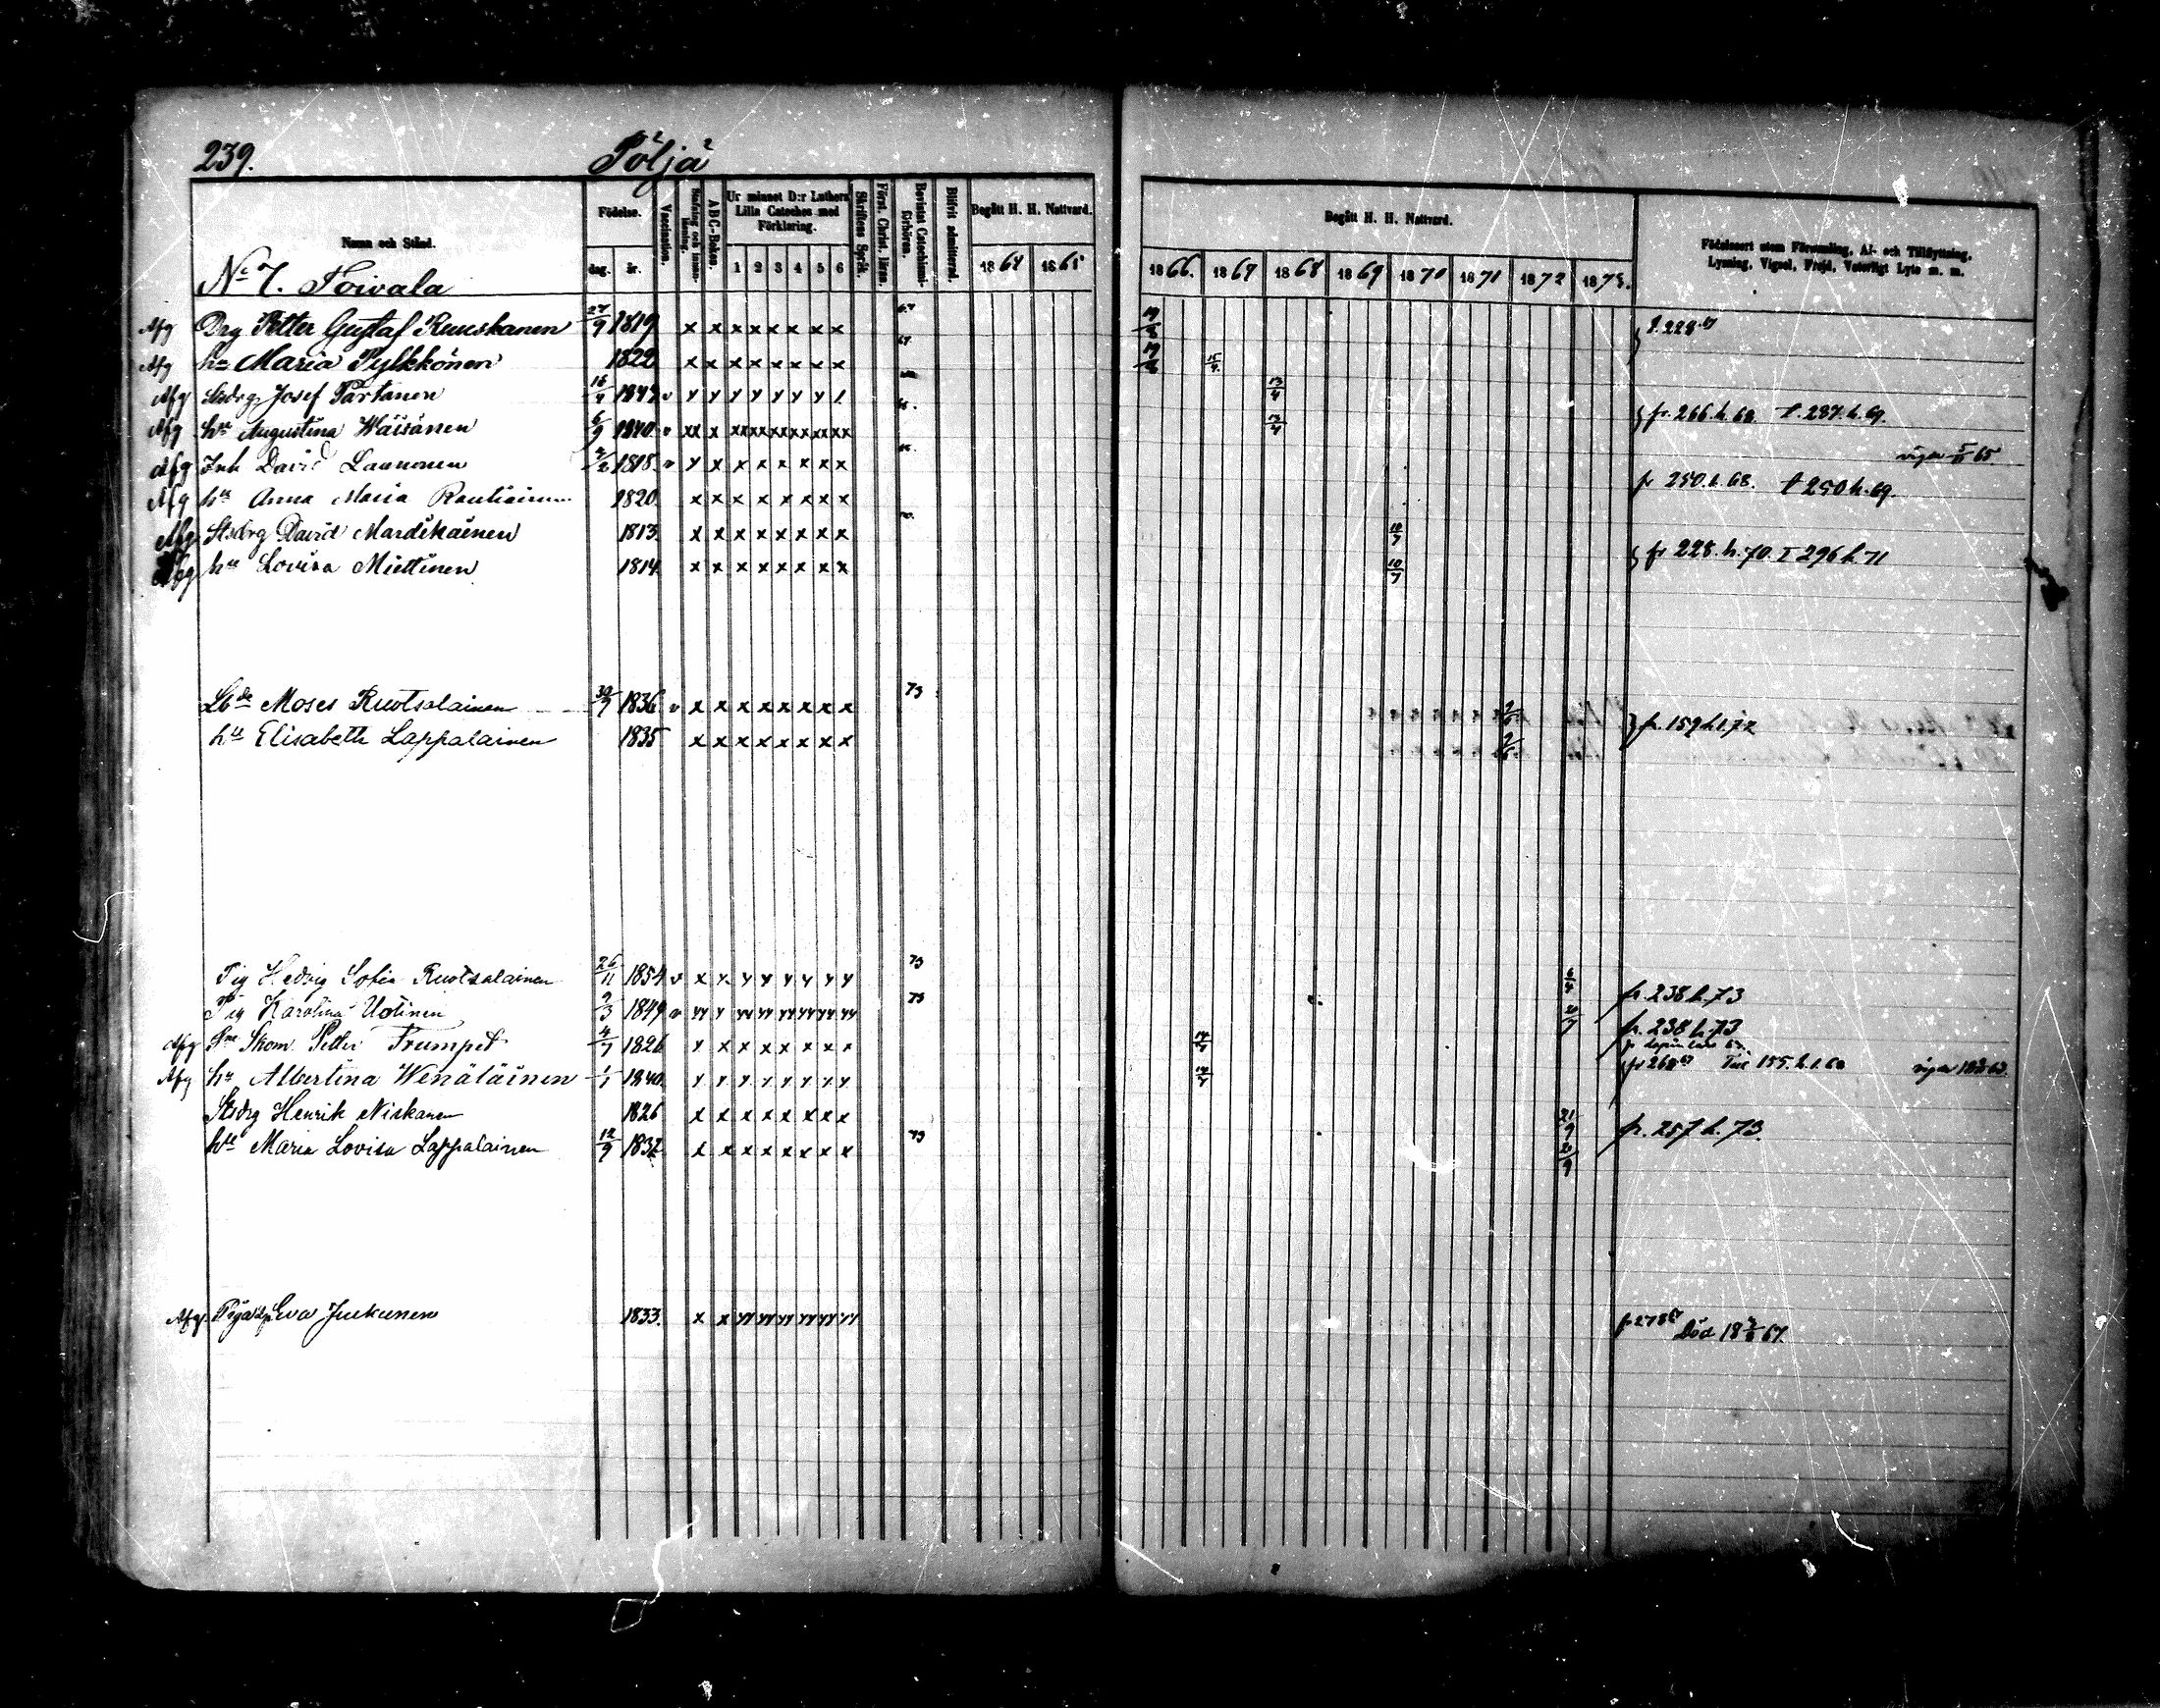 239. Pöljä
Namn och Stånd.
Födelse.
dag. år.
Vaccination.
ABC-Boken.
Ur minnet D:r Luthers Lilla Cateches med Förklaring.
1 2 3 4 5 6
Skriftens Språk.
Först. Christ. läran.
Bevistat Catechismi-förhören.
Blifvit admitterad.
Begått H. H. Nattvard.
1864 1865
Begått H. H. Nattvard.
1866. 1867 1868 1869 1870 1871 1872 1873.
Födelseort utom Församling, Af- och Tillflyttning,
Lysning, Vigsel, Frejd, Vaterligt Lyte m. m.
No 7. Toivala
Afg Drg Petter Gustaf Ruuskanen 27/9 1819 x x x x x x x x 67 t. 228.67
Afg hu Maria Pylkkönen 1822 x x x x x x x x 67.
Afg Josef Partanen 16/4 1842 v y y y y y y y 13/4
Afg hu Augustina Wäisänen 6/9 1840 v xx x xx xx xx xx xx xx 13/4 fr. 266. h. 68. t. 287. h. 69.
Afg Inh David Launonen 1818 v y x x x x x x x
Afg hu Anna Maria Rautiainen 1820 x x x x x x x x fr 250. h. 68. t 250 h. 69.
Afg Stsdrg David Mardikainen 1813 x x x x x x x x 10/7
Afg hu Lovisa Miettinen 1814 x x x x x x x x 10/7 fr 228. h. 70. T 296 h 71
Moses Ruotsalainen 30/7 1836 v x x x x x x x x 73
hu Elisabeth Lappalainen 1835 x x x x x x x x fr. 159 h1. 72
Pig Hedvig Sofia Ruotsalainen 26/11 1854 v x x y y y y y y 73 6/4 fr. 238 h. 73
Pig Karolina Uotinen 2/3 1849 v yy y yy yy yy yy yy yy 73 fr. 238 h. 73
Afg Skom. Petter Trumpet 4/7 1826 y x x x x x x x 14/4
Afg hu Albertina Wenäläinen 1/1 1840 y y y y y y y y 14/4 fr 268 67
Stsdrg Henrik Niskanen 1826 x x x x x x x x 21/9 fr. 257 h. 73.
hu Maria Lovisa Lappalainen 12/9 1832 x x x x x x x x 73
Afg. Eva Juckunen 1833. x x yy yy yy yy yy yy fr 278 67 Död